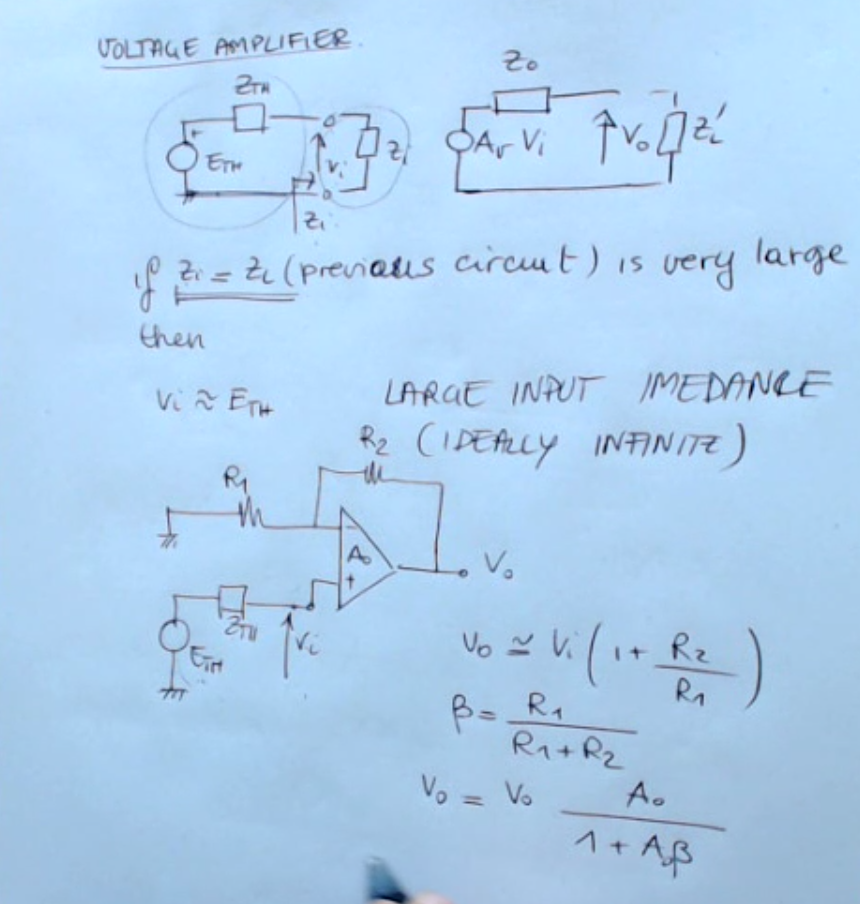 VOLTAGE AMPLIFIER.
Z_TH
E_TH
Vi
Zi
Zi
Zo
Av Vi
Vo
ZL'
if Zi = ZL (previous circuit) is very large
then
Vi ≈ E_TH
LARGE INPUT IMEDANCE
(IDEALLY INFINITE)
R2
R1
-
Ao
+
Vo
Z_TH
E_TH
Vi
Vo ≃ Vi (1 + R2/R1)
β = R1/(R1+R2)
Vo = Vo Ao/(1 + Aoβ)